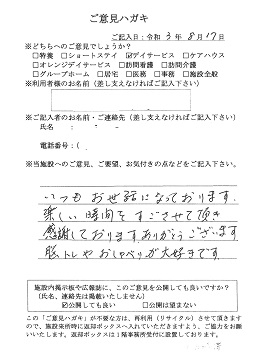 ご意見ハガキ
ご記入日：令和 3年 8月17日
※どちらへのご意見でしょうか？
□特養 □ショートステイ ☑デイサービス □ケアハウス
□オレンジデイサービス □訪問看護 □訪問介護
□グループホーム □居宅 □医務 □事務 □施設全般
※利用者様のお名前（差し支えなければご記入下さい）
※ご記入者のお名前・ご連絡先（差し支えなければご記入下さい）
氏名 ：
電話番号：（
※当施設へのご意見、ご要望、お気付きの点などをご記入下さい。
いつもお世話になっております。
楽しい時間をすごさせて頂き
感謝しております。ありがとうございます。
脳トレやおしゃべりが大好きです。
施設内掲示板や広報誌に、このご意見を公開しても良いですか？
（氏名、連絡先は掲載いたしません）
☑公開しても良い □公開は望まない
この「ご意見ハガキ」が不要な方は、再利用（リサイクル）させて頂きます
ので、施設来所時に返却ボックスへ入れていただきますよう、ご協力をお願
いいたします。返却ボックスは1階事務所受付に設置しております。